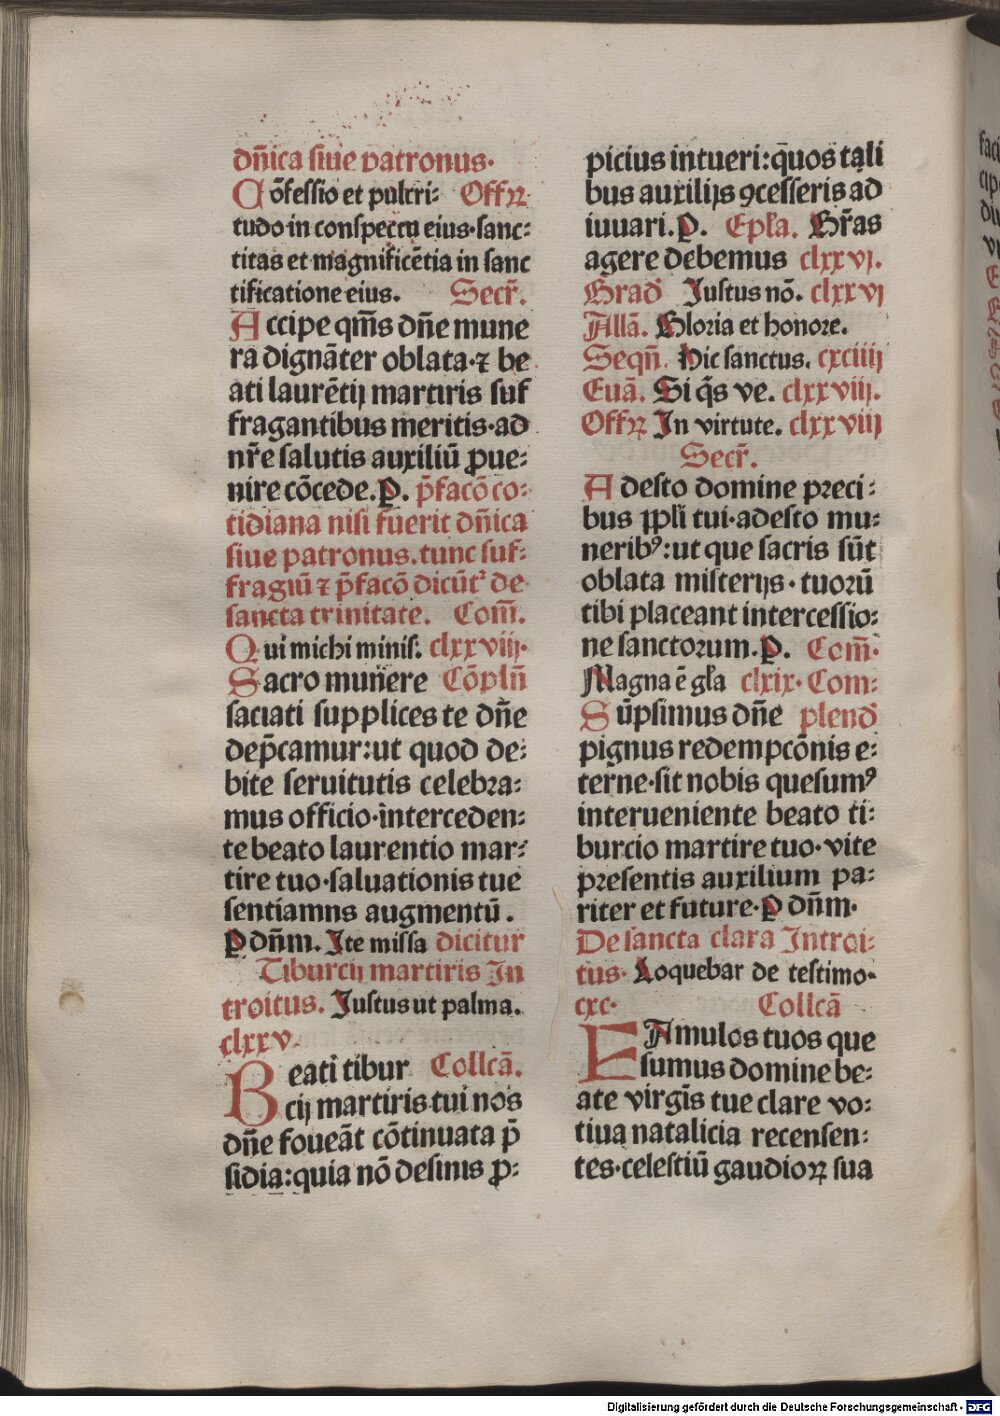 dn̄ica siue patronus·
Cōfessio et pulcri⸗ Offꝝ
tudo in conspectu eius·sanc⸗
titas et magnificētia in sanc
tificatione eius. Secr̄.
Accipe qm̄s dn̄e mune
ra dignāter oblata·⁊ be
ati laurētij martiris suf
fragantibus meritis·ad
nr̄e salutis auxiliū ꝓue⸗
nire cōcede.P. p̄facō co⸗
tidiana nisi fuerit dn̄ica
siue patronus.tunc suf⸗
fragiū ⁊ p̄facō dicūt᷑ de
sancta trinitate. Com̄.
Qui michi minis̄. clxxviij·
Sacro mun̄ere Cōpln̄
saciati supplices te dn̄e
dep̄camur:ut quod de⸗
bite seruitutis celebra⸗
mus officio·interceden⸗
te beato laurentio mar⸗
tire tuo·saluationis tue
sentiamns augmentū.
P dn̄m. Ite missa dicitur
Tiburcij martiris In
troitus. Justus ut palma.
clxxv.
Beati tibur Collcā.
cij martiris·tui nos
dn̄e foueāt cōtinuata p̄
sidia:quia nō desinis ꝓ⸗
picius intueri:q̄uos tali
bus auxilijs ꝯcesseris ad
iuuari.P. Epl̄a. Gr̄as
agere debemus clxxvj.
Grad̄ Justus nō. clxxvj
All̄ā. Gloria et honore.
Seqn̄. Hic sanctus. cxciiij
Euā. Si q̄s ve. clxxviij.
Offꝝ In virtute. clxxviij
Secr̄.
Adesto domine preci⸗
bus ꝓpl̄i tui·adesto mu⸗
neribꝰ:ut que sacris sūt
oblata misterijs·tuorū
tibi placeant intercessio⸗
ne sanctorum.P. Com̄·
Magna ē gl̄a clxix·Com⸗
Sūpsimus dn̄e plend̄
pignus redempcōnis e⸗
terne·sit nobis quesumꝰ
interueniente beato ti⸗
burcio martire tuo·vite
presentis auxilium pa⸗
riter et future·P dn̄m·
De sancta clara Introi⸗
tus· Loquebar de testimo⸗
cxc· Collcā
FAmulos tuos que
sumus domine be⸗
ate virgīs tue clare vo⸗
tiua natalicia recensen⸗
tes·celestiū gaudioꝝ sua
Digitalisierung gefördert durch die Deutsche Forschungsgemeinschaft - DFG